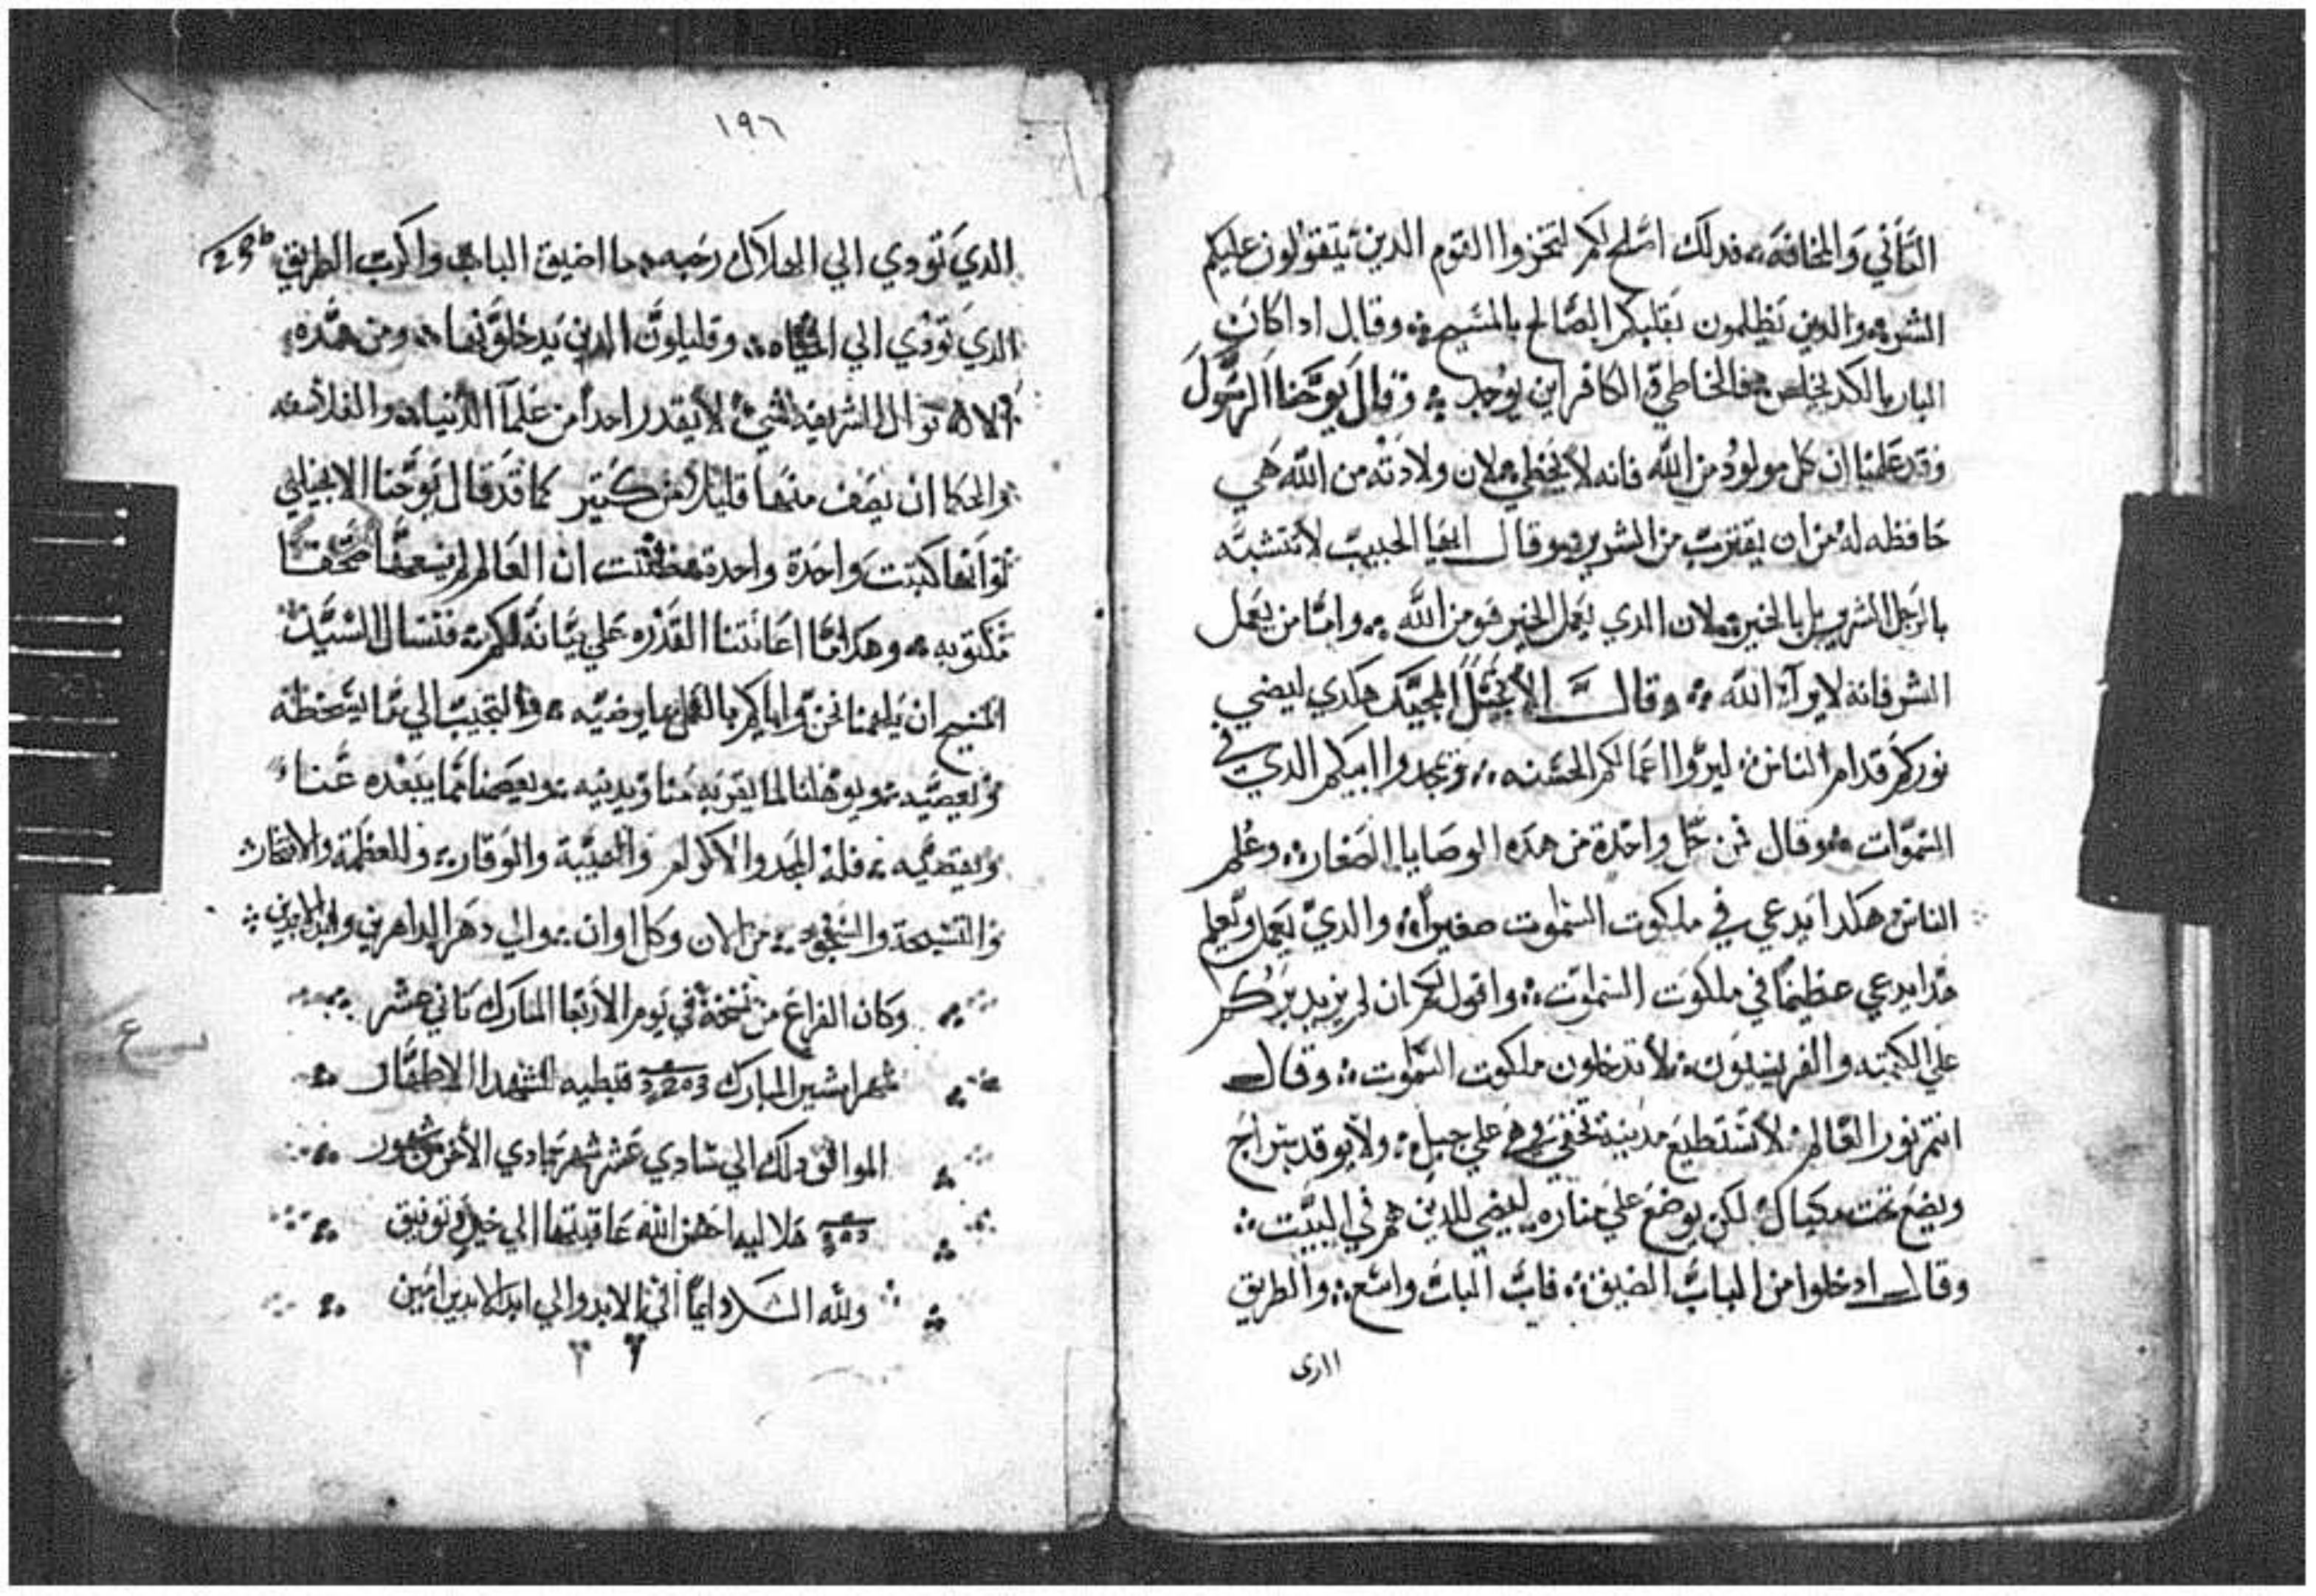 التأني والمخافة فدلك اصلح لكم لتخزوا القوم الدين يتقولون عليكم
الشر والدين يظلمون بقلبكم الصالح بالمسيح وقال ادا كان
البار بالكد يخلص فالخاطي الكافر اين يوجد وقال يوحنا الرسول
وقد علمنا ان كل مولود من الله فانه لا يخطي لان ولادته من الله هي
حافظه له من ان يقترب من الشرير وقال ايها الحبيب لا تتشبه
بالرجل الشرير بل بالخير لان الدي يعمل الخير فهو من الله واما من يعمل
الشر فانه لا يرا الله وقال الانجيل المجيد هكدي ليضي
نوركم قدام الناس ليروا اعمالكم الحسنه ويمجدوا ابيكم الدي في
السموات وقال من حل واحدة من هده الوصايا الصغار وعلم
الناس هكدا يدعي في ملكوت السموات صغيرا والدي يعمل ويعلم
هدا يدعي عظيما في ملكوت السموات واقول لكم ان لم يزيد بركم
علي الكتبه والفريسيون لا تدخلون ملكوت السموات وقال
انتم نور العالم لا تستطيع مدينة تخفي وهي علي جبل ولا يوقد سراج
ويضع تحت مكيال لكن يوضع علي مناره ليضي للدين هم في البيت
وقال ادخلوا من الباب الضيق فان الباب واسع والطريق
١٩٦
الدي تودي الي الهلاك رحبه ما اضيق الباب واكرب الطريق
الدي تودي الي الحياه وقليلون الدين يدخلونها ومن هده
الاقوال الشريفه شي لا يقدر احدا من علما الدنيا والفلاسفه
والحكما ان يصف منها قليلا من كتير كما قد قال يوحنا الانجيلي
لو انها كتبت واحدة واحدة لظننت ان العالم لم يسعها صحفا
مكتوبه وهدا ما اعانتنا القدره علي بيانه لكم فنسال السيد
المسيح ان يلهمنا نحن واياكم بالعمل بما يرضيه والتجنب الي ما يسخطه
ويعصيه ويوهلنا لما يقربه منا ويدنيه ويعصمنا مما يبعده عنا
ويقصيه فله المجد والاكرام والهيبة والوقار والعظمة والافتخار
والتسبحة والسجود من الان وكل اوان والي دهر الداهرين وابد الابدين
وكان الفراغ من نسخة في يوم الاربعا المبارك تاني عشر
شهر امشير المبارك قبطيه للشهدا الاطهار
الموافق دلك الي حادي عشر شهر جمادي الاخر
هلاليه احسن الله عاقبتها الي خير وتوفيق
ولله الشكر دايما الي الابد والي ابد الابدين امين